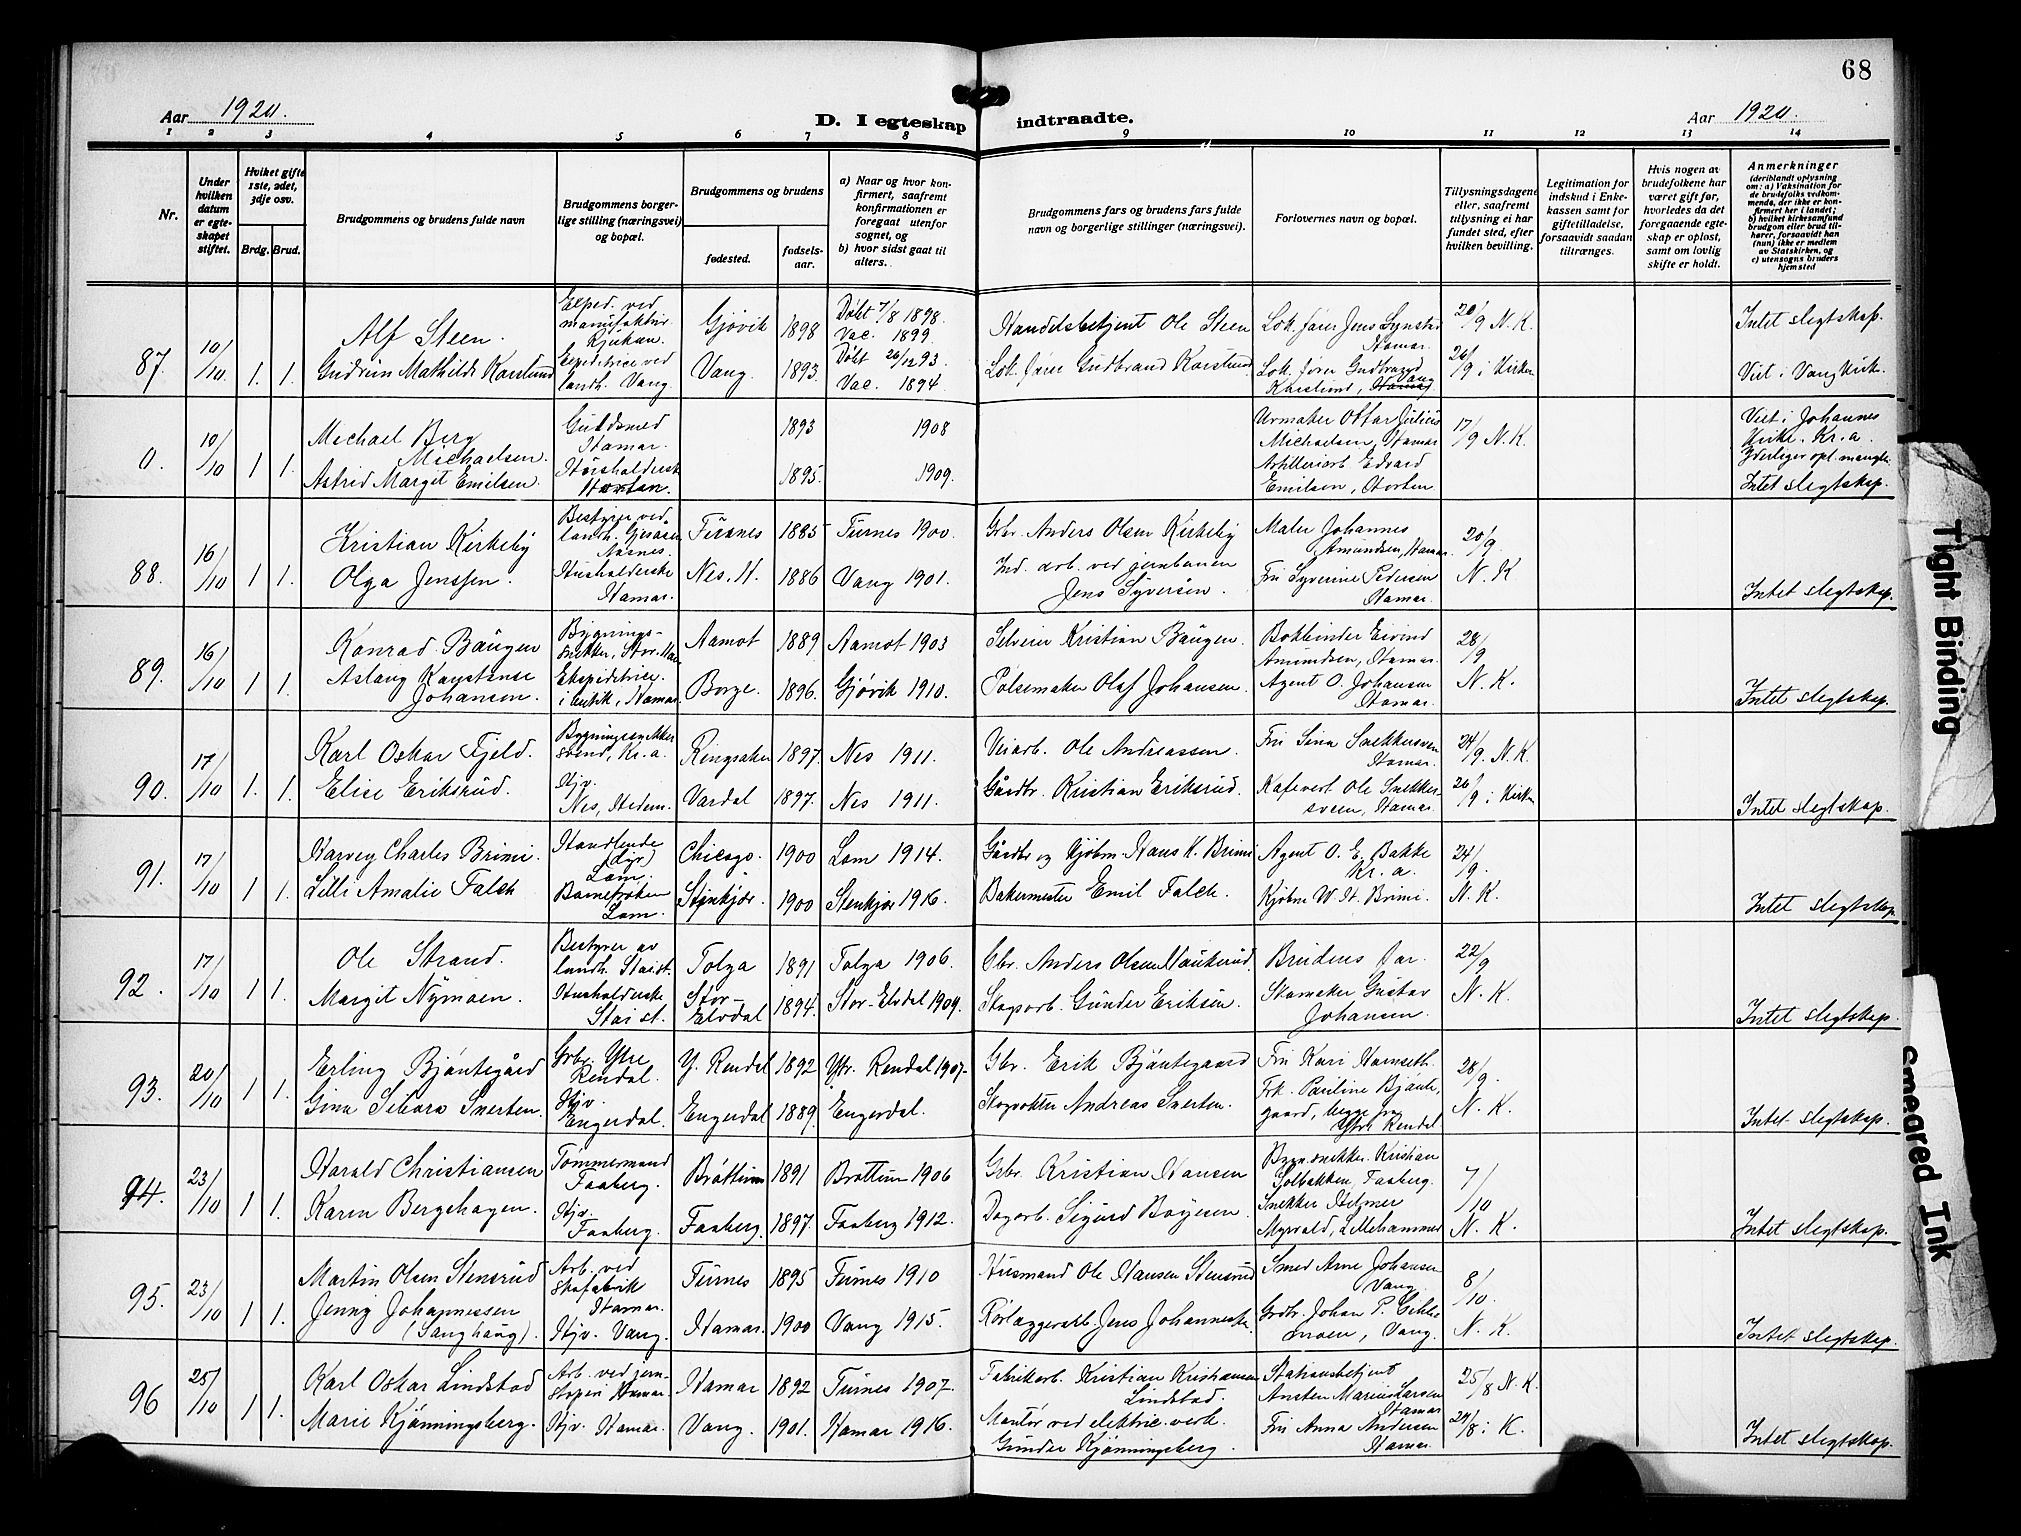 68
Aar 1920.
D. I egteskap indtraadte.
Aar 1920.
1 2 3 4 5 6 7 8 9 10 11 12 13 14
Nr.
Under hvilken datum er egteskapet stiftet.
Hviket gifte 1ste, 2det, 3dje osv.
Brdg. Brud.
Brudgommens og brudens fulde navn
Brudgommens borgerlige stilling (næringsvei) og bopæl.
Brudgommens og brudens
fødested.
fødselsaar.
a) Naar og hvor konfirmert, saafremt konfirmationen er foregaat utenfor sognet, og
b) hvor sidst gaat til alters.
Brudgommens fars og brudens fars fulde navn og borgerlige stillinger (næringsvei).
Forlovernes navn og bopæl.
Tillysningsdagene eller, saafremt tillysning ei har fundet sted, efter hvilken bevilling.
Legitimation for indskud i Enkekassen samt for giftetilladelse, forsaavidt saadan tiltrænges.
Hvis nogen av brudefolkene har været gift før, hvorledes da det foregaaende egteskap er opløst, samt om lovlig skifte er holdt.
Anmerkninger (deriblandt oplysning om: a) Vaksination for de brudefolks vedkommende, der ikke er konfirmert her i landet; b) hvilket kirkesamfund brudgom eller brud tilhører, forsaavidt han (hun) ikke er medlem av Statskirken, og c) utensogns bruders hjemsted
87. 10/10. 1. 1.
Alf Steen. Exped. ved manufaktur. Rjukan. Gjøvik 1898 Døbt 7/8 1898. Vac. 1899. Handelsbetjent Ole Steen Lok. fører Jens Synstad Hamar. 20/9 N. K. Intet slegtskap.
Gudrun Mathilde Karslund Expeditrice ved landh. Vang. Vang. 1893. Døbt 26/12 93. Vac. 1894 Lok. fører Gudbrand Karslund Lok. fører Gudbrand Karslund, Vang 26/9 i Kirken Viet i Vang kirke.
0. 10/10 1 1.
Michael Berg Michaelsen. Guldsmed Hamar. 1893 1908 Urmaker Ottar Julius Michaelsen, Hamar 17/9 N. K. Viet i Johannes Kirke. Kr.a. Yderliger opl. mangler.
Astrid Margit Emilsen. Husholderske Horten. 1895. 1909. Artilleriarb. Edvard Emilsen, Horten Intet slegtskap.
88. 16/10 1 1.
Kristian Kirkeby Bestyrer ved landh. Furnes 1885 Furnes 1900. Gbr. Anders Olsen Kirkeby Maler Johannes Amundsen, Hamar. 20/9.
Olga Jenssen. Husholderske Hamar. Nes, H. 1886 Vang 1901. Ind. arb. ved jernbanen Jens Syversen. Fru Syverine Pedersen Hamar. N. K Intet slegtskap.
89. 16/10 1 1.
Konrad Baugen Bygningssnekker, Stor. Aamot 1889 Aamot 1903 Selveier Kristian Baugen. Bokbinder Eivind Amundsen, Hamar. 28/9
Aslaug Konstanse Johansen. Ekspeditrice i butik, Hamar. Borge. 1896. Gjøvik 1910. Pølsemaker Olaf Johansen. Agent O. Johansen Hamar. N. K. Intet slegtskap.
90. 17/10 1. 1.
Karl Oskar Fjeld. Bygningssnekkersvend, Kr.a. Ringsaker 1897 Nes 1911. Veiarb. Ole Andreassen. Fru Sina Snekkersven Hamar. 24/9. N. K.
Elise Eriksrud. Hjv. Nes, Hedem. Vardal 1897. Nes 1911. Gårdbr. Kristian Eriksrud. Kafevert Ole Snekkersveen, Hamar. 26/9 i Kirken Intet slegtskap.
91. 17/10 1 1.
Harvey Charles Brimi. Handlende (dyr) Lom. Chicago. 1900 Lom 1914. Gårdbr og Kjøbm. Hans K. Brimi Agent O. E. Bakke Kr. a. 24/9.
Lilli Amalie Falch Barnefrøken Lom. Stenkjær. 1900 Stenkjær 1916. Bakermester Emil Falch. Kjøbm W. H. Brimi. N. K. Intet slegtskap
92. 17/10 1 1.
Ole Strand. Bestyrer av landh. Stai st. Tolga 1891 Tolga 1906. Gbr. Anders Olsen Haukerud. Brudens Far. 22/9
Margit Nymoen. Husholderske Stai st. Stor-Elvdal 1894. Stor-Elvdal 1909. Skogsarb. Gunder Eriksen. Skomaker Gustav Johansen. N. K. Intet slegtskap.
93. 20/10 1 1.
Erling Bjøntegård Gbr. Ytre Rendal. Y. Rendal 1892 Ytr. Rendal 1907. Gbr. Erik Bjøntegaard Fru Kari Hamseth. 28/9.
Gina Sebora Snerten. Hjv. Engerdal. Engerdal 1889. Engerdal. Skogvokter Andreas Snerten. Frk. Pauline Bjøntegaard, begge fra Ytre Rendal N. K. Intet slegtskap.
94. 23/10 1 1.
Harald Christiansen Tømmermand Faaberg. Brøttum 1891 Brøttum 1906 Gbr. Kristian Hansen Bygn.snekker. Kristian Solbakken, Faaberg. 7/10
Karen Bergehagen. Hjv. Faaberg. Faaberg. 1897. Faaberg 1912. Dagarb. Sigurd Bøyesen. Snekker Helmer Myrvold, Lillehammer N. K. Intet slegtskap.
95. 23/10 1 1.
Martin Olsen Stensrud Arb. ved Skofabrik Hamar. Furnes 1895 Furnes 1910 Husmand Ole Hansen Stensrud Smed Arne Johansen Vang. 8/10.
Jenny Johannessen (Sanghaug). Hjv. Vang. Hamar. 1900 Vang 1915. Rørlæggerarb. Jens Johannesen. Grdbr. Johan P. moen, Vang. N. K. Intet slegtskap.
96 25/10 1 1.
Karl Oskar Lindstad Arb. ved jernstøperi Hamar. Hamar 1892 Furnes 1907. Fabrikarb. Kristian Kristiansen Lindstad. Stationsbetjent Ansten Marius Larsen Hamar 25/8 N. K.
Marie Kjønningsberg. Hjv. Hamar. Vang. 1901. Hamar 1916. Montør ved elektric. verk. Gunder Kjønningsberg. Fru Anna Andersen Hamar. 29/8 i K. Intet slegtskap.
Tight Binding
Smeared Ink